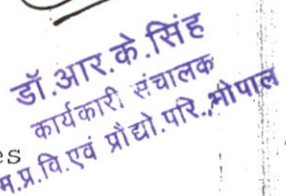 डॉ.आर.के.सिंह
कार्यकारी संचालक
es
म.प्र.वि.एवं प्रौद्यो.परि.,भोपाल